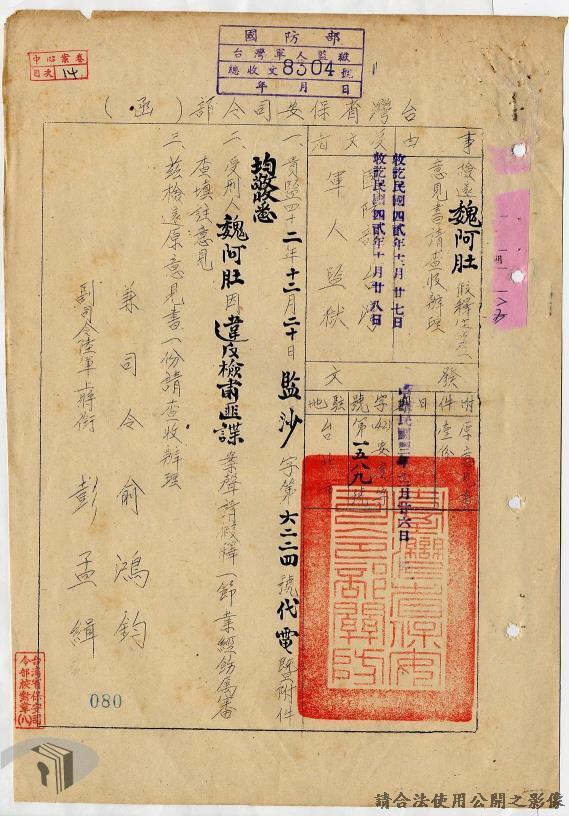 國防部
台灣軍人監獄
總收文8304號
年 月 日
中心案卷
目次 14
台灣省保安司令部(函)
事由
檢送魏阿肚假釋
意見書請查收辦理
受文者
國防部台灣
軍人監獄
收訖民國四貳年十二月廿七日
收訖民國四貳年十二月廿八日
發文
附件
原意見書壹份
日
中華民國 年 月廿六日
字號
(42)安
第一五八九號
駐地
台
一、貴監四十二年十二月二十日監沙字第六二二四號代電暨附件
均敬悉
二、受刑人魏阿肚因違反檢肅匪諜案聲請假釋一節業經飭屬審
查填註意見
三、茲檢送原意見書一份請查收辦理
兼司令 俞鴻鈞
副司令陸軍上將銜 彭孟緝
台灣省保安司
令部校對章(八)
080
請合法使用公開之影像